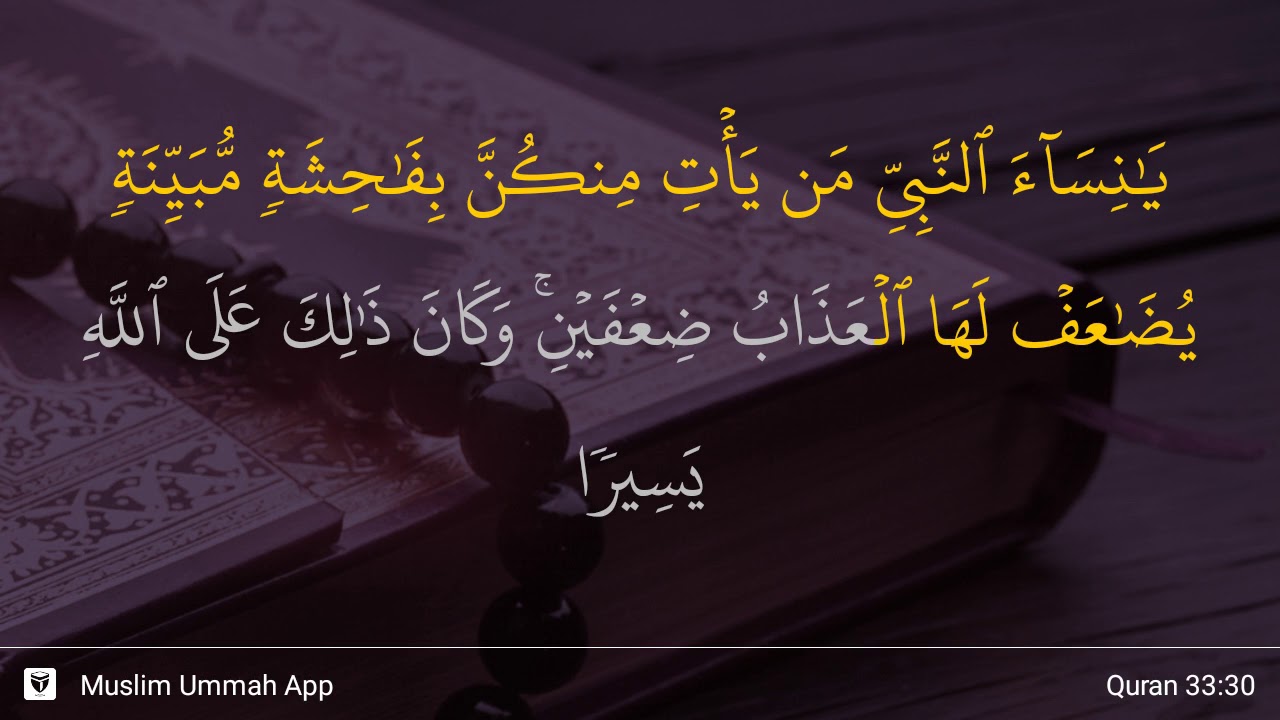 يَـٰنِسَآءَ ٱلنَّبِيِّ مَن يَأْتِ مِنكُنَّ بِفَـٰحِشَةٍۢ مُّبَيِّنَةٍۢ
يُضَـٰعَفْ لَهَا ٱلْعَذَابُ ضِعْفَيْنِ ۚ وَكَانَ ذَٰلِكَ عَلَى ٱللَّهِ
يَسِيرًۭا
Muslim Ummah App
Quran 33:30